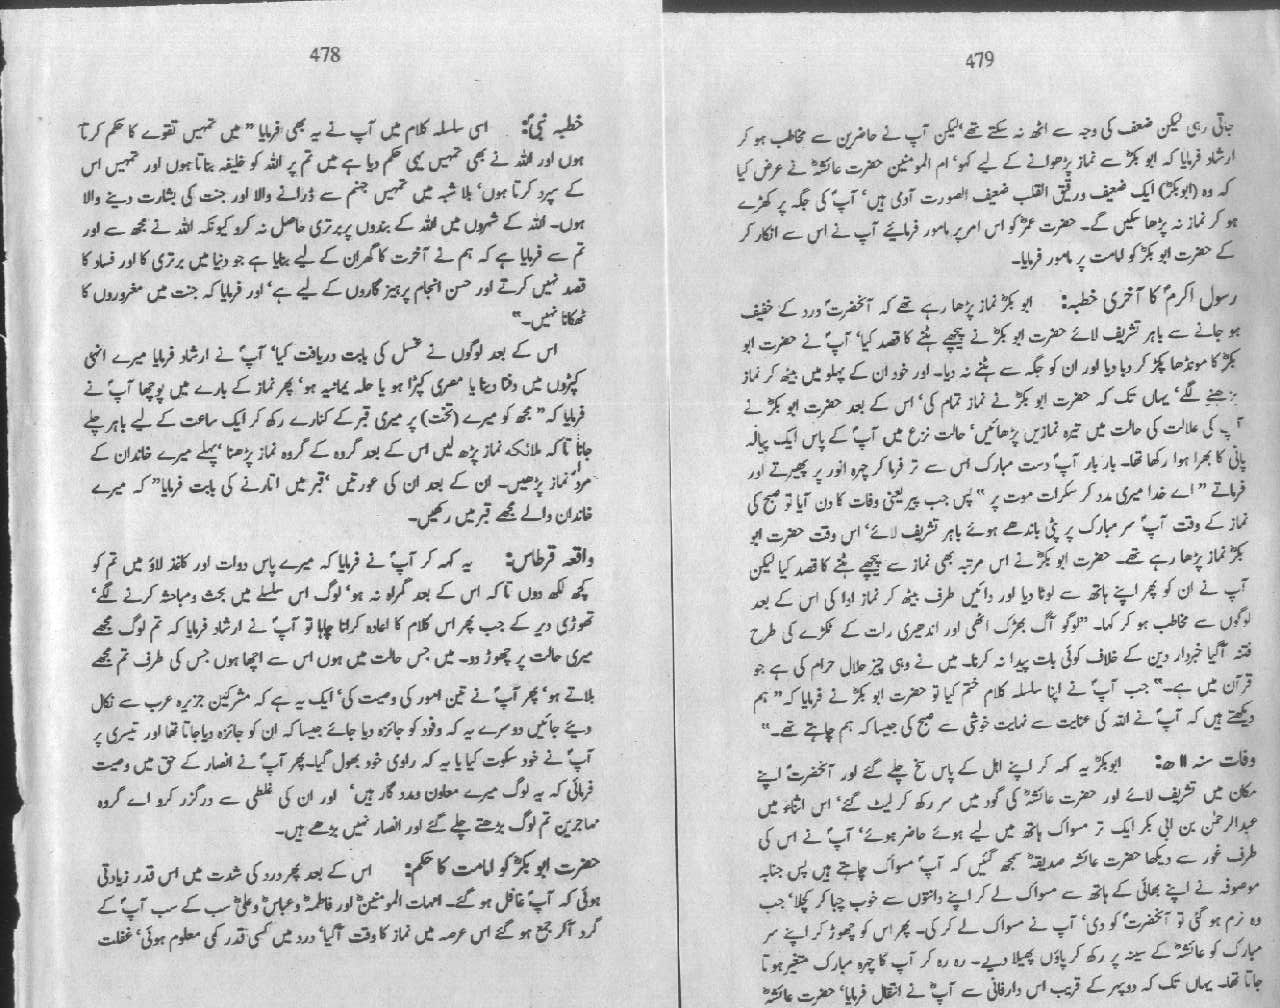 478
خطبہ نبیؐ: اسی سلسلہ کلام میں آپ نے یہ بھی فرمایا ”میں تمہیں تقوے کا حکم کرتا
ہوں اور اللہ نے بھی تمہیں یہی حکم دیا ہے میں تم پر اللہ کو خلیفہ بناتا ہوں اور تمہیں اس
کے سپرد کرتا ہوں‘ بلا شبہ میں تمہیں جہنم سے ڈرانے والا اور جنت کی بشارت دینے والا
ہوں۔ اللہ کے شہروں میں اللہ کے بندوں پر برتری حاصل نہ کرو کیونکہ اللہ نے مجھ سے اور
تم سے فرمایا ہے کہ ہم نے آخرت کا گھر ان کے لیے بنایا ہے جو دنیا میں برتری کا اور فساد کا
قصد نہیں کرتے اور حسن انجام پرہیز گاروں کے لیے ہے‘ اور فرمایا کہ جنت میں مغروروں کا
ٹھکانا نہیں۔“
اس کے بعد لوگوں نے غسل کی بابت دریافت کیا‘ آپؐ نے ارشاد فرمایا میرے انہی
کپڑوں میں دفنا دینا یا مصری کپڑا ہو یا حلہ یمانیہ ہو‘ پھر نماز کے بارے میں پوچھا آپؐ نے
فرمایا کہ ”مجھ کو میرے (تخت) پر میری قبر کے کنارے رکھ کر ایک ساعت کے لیے باہر چلے
جانا تا کہ ملائکہ نماز پڑھ لیں اس کے بعد گروہ کے گروہ نماز پڑھنا‘ پہلے میرے خاندان کے
مرد نماز پڑھیں۔ ان کے بعد ان کی عورتیں‘ قبر میں اتارنے کی بابت فرمایا” کہ میرے
خاندان والے مجھے قبر میں رکھیں۔
واقعہ قرطاس: یہ کہہ کر آپؐ نے فرمایا کہ میرے پاس دوات اور کاغذ لاؤ میں تم کو
کچھ لکھ دوں تا کہ اس کے بعد گمراہ نہ ہو‘ لوگ اس سلسلے میں بحث و مباحثہ کرنے لگے‘
تھوڑی دیر کے جب پھر اس کلام کا اعادہ کرانا چاہا تو آپؐ نے ارشاد فرمایا کہ تم لوگ مجھے
میری حالت پر چھوڑ دو۔ میں جس حالت میں ہوں اس سے اچھا ہوں جس کی طرف تم مجھے
بلاتے ہو‘ پھر آپؐ نے تین امور کی وصیت کی‘ ایک یہ ہے کہ مشرکین جزیرہ عرب سے نکال
دیئے جائیں دوسرے یہ کہ وفود کو جائزہ دیا جائے جیسا کہ ان کو جائزہ دیا جاتا تھا اور تیسری پر
آپؐ نے خود سکوت کیا یا یہ کہ راوی خود بھول گیا۔ پھر آپؐ نے انصار کے حق میں وصیت
فرمائی کہ یہ لوگ میرے معاون و مدد گار ہیں‘ اور ان کی غلطی سے درگزر کرو اے گروہ
مہاجرین تم لوگ بڑھتے چلے گئے اور انصار نہیں بڑھے ہیں۔
حضرت ابو بکرؓ کو امامت کا حکم: اس کے بعد پھر درد کی شدت میں اس قدر زیادتی
ہوئی کہ آپؐ غافل ہو گئے۔ امہات المومنینؓ اور فاطمہؓ و عباسؓ و علیؓ سب کے سب آپؐ کے
گرد آکر جمع ہو گئے اس عرصہ میں نماز کا وقت آگیا‘ درد میں کسی قدر کمی معلوم ہوئی‘ غفلت
479
جاتی رہی لیکن ضعف کی وجہ سے اٹھ نہ سکتے تھے‘ لیکن آپ نے حاضرین سے مخاطب ہو کر
ارشاد فرمایا کہ ابو بکرؓ سے نماز پڑھوانے کے لیے کہو‘ ام المومنین حضرت عائشہؓ نے عرض کیا
کہ وہ (ابو بکرؓ) ایک ضعیف ورقیق القلب ضعیف الصورت آدمی ہیں‘ آپؐ کی جگہ پر کھڑے
ہو کر نماز نہ پڑھا سکیں گے۔ حضرت عمرؓ کو اس امر پر مامور فرمائیے آپ نے اس سے انکار کر
کے حضرت ابو بکرؓ کو امامت پر مامور فرمایا۔
رسول اکرمؐ کا آخری خطبہ: ابو بکرؓ نماز پڑھا رہے تھے کہ آنحضرتؐ درد کے خفیف
ہو جانے سے باہر تشریف لائے حضرت ابو بکرؓ نے پیچھے ہٹنے کا قصد کیا‘ آپؐ نے حضرت ابو
بکرؓ کا مونڈھا پکڑ کر دبا دیا اور ان کو جگہ سے ہٹنے نہ دیا۔ اور خود ان کے پہلو میں بیٹھ کر نماز
پڑھنے لگے‘ یہاں تک کہ حضرت ابو بکرؓ نے نماز تمام کی‘ اس کے بعد حضرت ابو بکرؓ نے
آپ کی علالت کی حالت میں تیرہ نمازیں پڑھائیں‘ حالت نزع میں آپؐ کے پاس ایک پیالہ
پانی کا بھرا ہوا رکھا تھا۔ بار بار آپؐ دست مبارک اس سے تر فرما کر چہرہ انور پر پھیرتے اور
فرماتے ”اے خدا میری مدد کر سکرات موت پر“ پس جب پیر یعنی وفات کا دن آیا تو صبح کی
نماز کے وقت آپؐ سر مبارک پر پٹی باندھے ہوئے باہر تشریف لائے‘ اس وقت حضرت ابو
بکرؓ نماز پڑھا رہے تھے۔ حضرت ابو بکرؓ نے اس مرتبہ بھی نماز سے پیچھے ہٹنے کا قصد کیا لیکن
آپ نے ان کو پھر اپنے ہاتھ سے لوٹا دیا اور دائیں طرف بیٹھ کر نماز ادا کی اس کے بعد
لوگوں سے مخاطب ہو کر کہا۔ ”لوگو آگ بھڑک اٹھی اور اندھیری رات کے ٹکڑے کی طرح
فتنہ آگیا خبردار دین کے خلاف کوئی بات پیدا نہ کرنا۔ میں نے وہی چیز حلال حرام کی ہے جو
قرآن میں ہے۔“ جب آپؐ نے اپنا سلسلہ کلام ختم کیا تو حضرت ابو بکرؓ نے فرمایا کہ” ہم
دیکھتے ہیں کہ آپؐ نے اللہ کی عنایت سے نہایت خوشی سے صبح کی جیسا کہ ہم چاہتے تھے۔“
وفات سنہ ۱۱ھ: ابو بکرؓ یہ کہہ کر اپنے اہل کے پاس سخ چلے گئے اور آنحضرتؐ اپنے
مکان میں تشریف لائے اور حضرت عائشہؓ کی گود میں سر رکھ کر لیٹ گئے‘ اس اثناء میں
عبدالرحمٰن بن ابی بکر ایک تر مسواک ہاتھ میں لیے ہوئے حاضر ہوئے‘ آپؐ نے اس کی
طرف غور سے دیکھا حضرت عائشہ صدیقہؓ سمجھ گئیں کہ آپؐ مسواک چاہتے ہیں پس جنابہ
موصوفہ نے اپنے بھائی کے ہاتھ سے مسواک لے کر اپنے دانتوں سے خوب چبا کر کچلا‘ جب
وہ نرم ہو گئی تو آنحضرتؐ کو دی‘ آپ نے مسواک لے کر کی۔ پھر اس کو چھوڑ کر اپنے سر
مبارک کو عائشہؓ کے سینہ پر رکھ کر پاؤں پھیلا دیے۔ رہ رہ کر آپ کا چہرہ مبارک متغیر ہوتا
جاتا تھا۔ یہاں تک کہ دوپہر کے قریب اس دارفانی سے آپؐ نے انتقال فرمایا‘ حضرت عائشہؓ